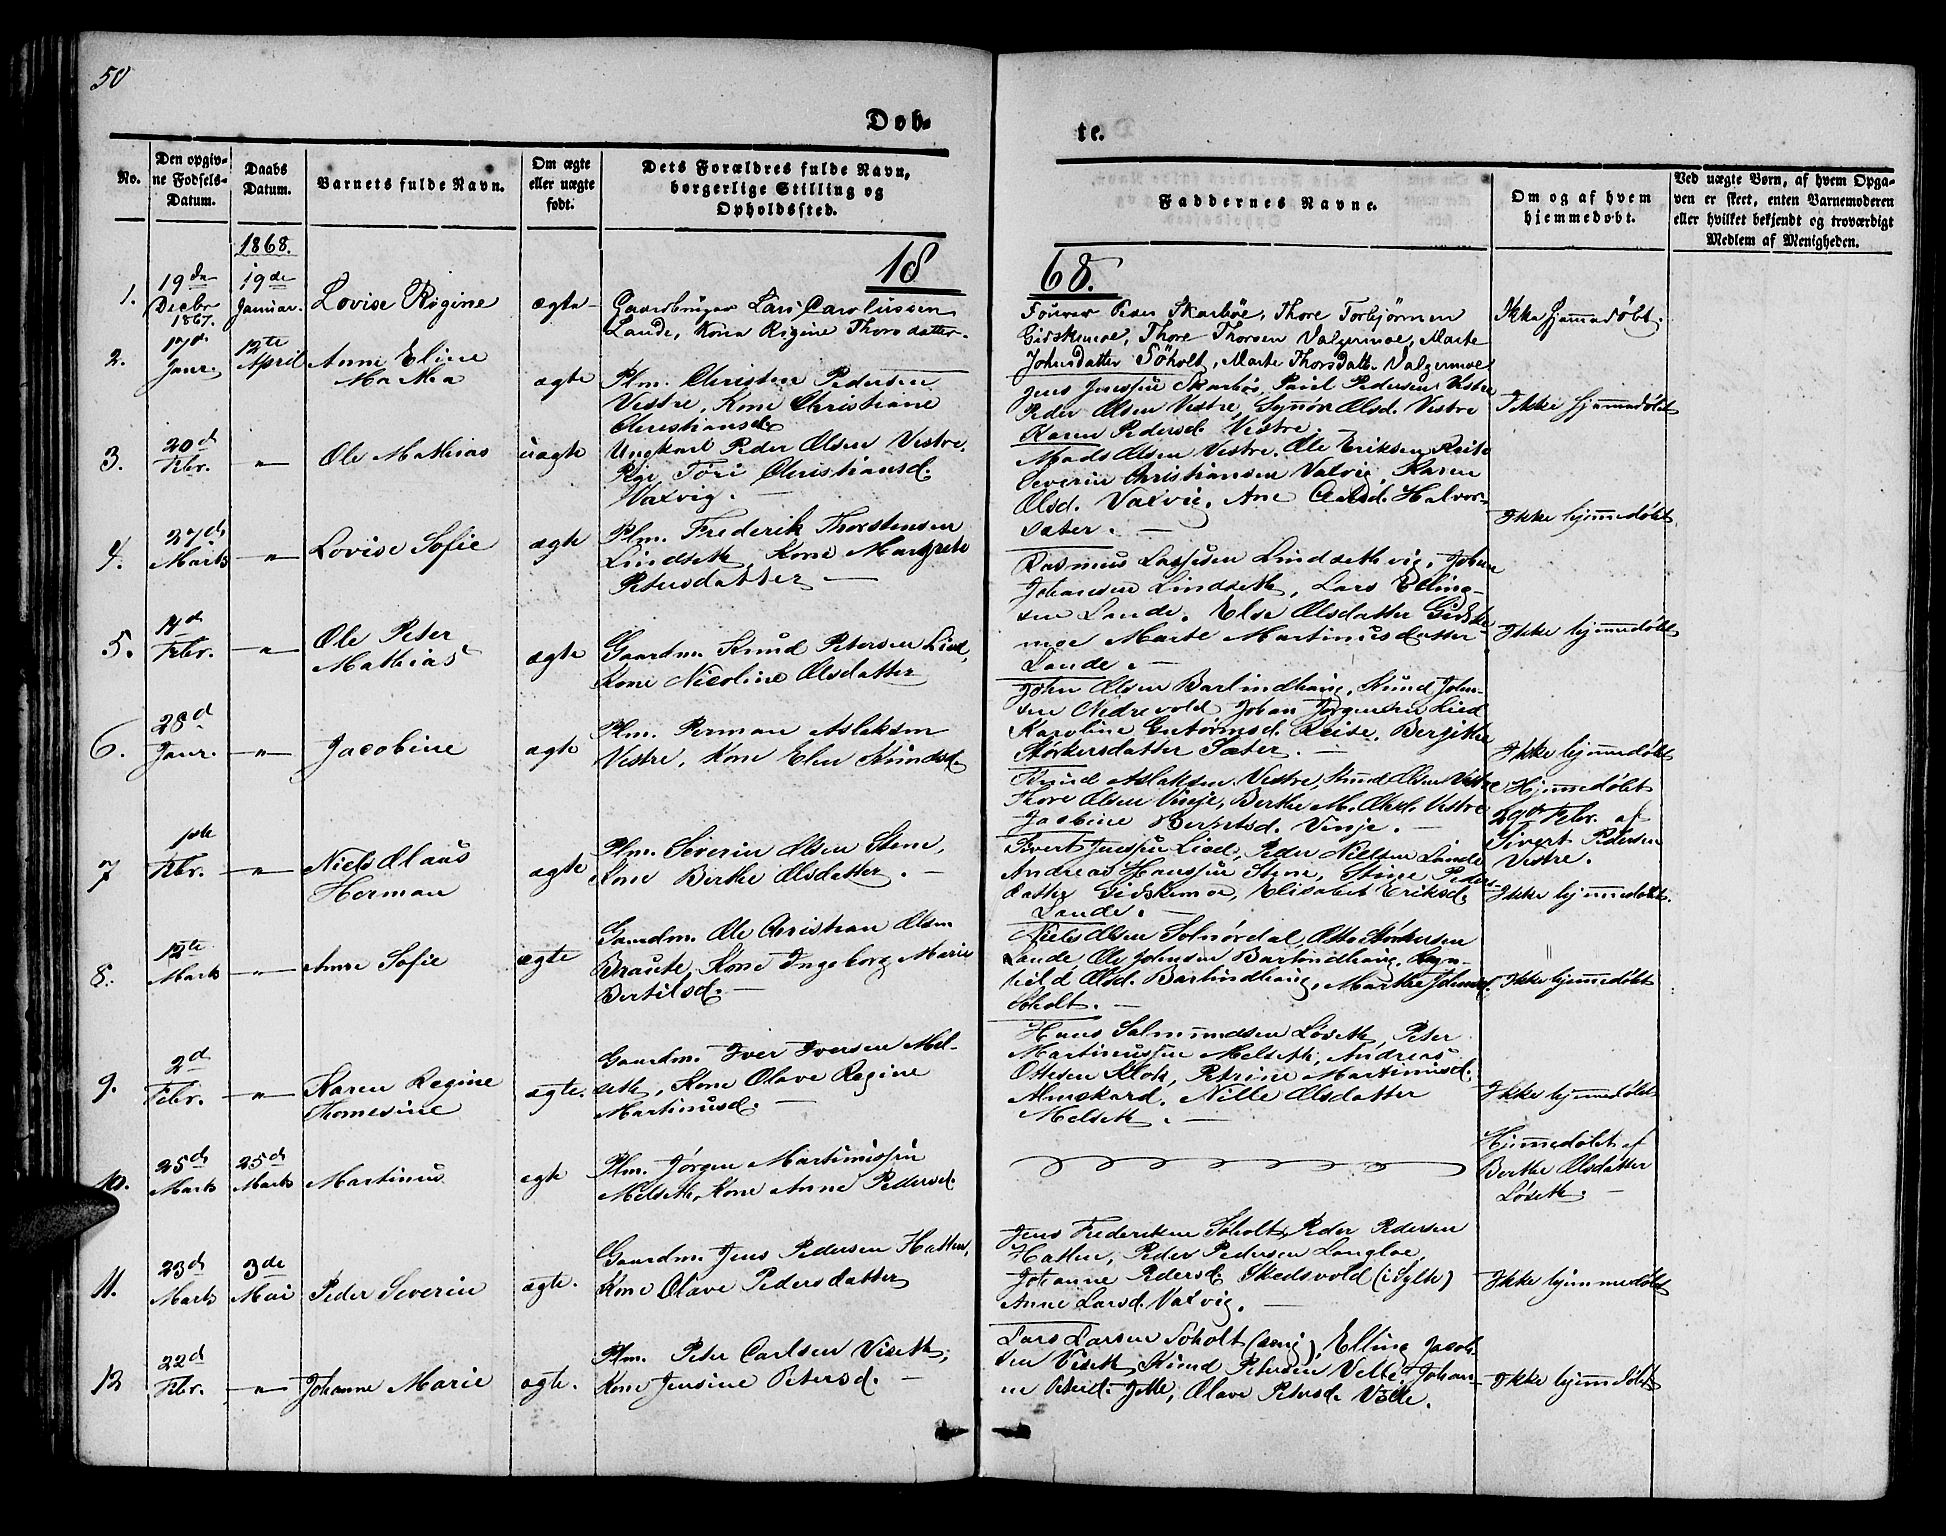 50
Døb-
te.
No.
Den opgiv-
ne Fødsels-
Datum.
Daabs
Datum.
Barnets fulde Navn.
Om ægte
eller uægte
født.
Dets Forældres fulde Navn,
borgerlige Stilling og
Opholdssted.
Faddernes Navne.
Om og af hvem
hjemmedøbt.
Ved uægte Børn, af hvem Opga-
ven er skeet, enten Barnemoderen
eller hvilket bekjendt og troværdigt
Medlem af Menigheden.
1868.
18
68.
1.
19de
Decbr
1867.
19de
Januar.
Lovise Regine
ægte
Gaardbruger Lars Carolussen
Lande, Kone Regine Thorsdatter
Peder Skarbøe, Thore Torbjørnsen
Gidskemoe, Thore Thorsen Valgermoe, Marte
Johnsdatter Søholt, Marte Thorsdatt. Valgermoe
Ikke hjemmedøbt.
2.
17d
Janr.
12te
April
Anne Eline
Mathea
ægte
Plm. Christen Pedersen
Vestre, Kone Christiane
Christiansd.
Jens Jenssen Skarbøe, Paul Pedersen Vestre
Peder Olsen Vestre, Synøve Olsd. Vestre
Karen Pedersd. Vestre.
Ikke hjemmedøbt
3.
20d
Febr.
"
Ole Mathias
uægte
Ungkarl Peder Olsen Vestre,
Pige Turi Christiansd.
Vaxvig.
Mads Olsen Vestre. Ole Eriksen
Severin Christiansen Vaxvig, Karen
Olsd. Vaxvig, Ane Halvor-
sæter.
Ikke hjemmedøbt
4.
27de
Marts
"
Lovise Sofie
ægte
Plm. Frederik Thorstensen
Lindseth, Kone Margrete
Petersdatter
Rasmus Lassesen Lindsethvig, Johan
Johansen Lindseth, Lars Elling-
sen Lande. Else Olsdatter Gidske-
moe Marte Martinusdatter
Lande.
Ikke hjemmedøbt
5.
14d
Febr.
"
Ole Peter
Mathias
ægte
Gaardm. Knud Petersen Lied,
Kone Nicoline Olsdatter
John Olsen Barlindhaug, Knud John-
sen Nedrevold Johan Jørgensen Lied
Karoline Guttormsd. Reise, Bergitte
Størkersdatter Sæter.
Ikke hjemmedøbt
6.
28d
Janr.
"
Jacobine
ægte
Plm. Perman Aslaksen
Vestre, Kone Elen Knudsd.
Knud Aslaksen Vestre, Knud Olsen Vestre
Thore Olsen Vinje, Berthe M. Olsd. Vestre
Jacobine Berntsd. Vinje.
Hjemmedøbt
29de Febr. af
Sivert Pedersen
Vestre.
7
1ste
Febr.
"
Niels Olaus
Herman
ægte
Plm. Severin Olsen Stene,
Kone Berthe Olsdatter.
Sivert Jenssen Lied, Peder Nielsen Lande
Andreas Hanssen Stene, Stine Peders-
datter Gidskemoe, Elisabet Eriksd.
Lande.
Ikke hjemmedøbt.
8.
12te
Marts
"
Anne Sofie
ægte
Gaardm. Ole Christian Olsen
Braute, Kone Ingeborg Marie
Bertilsd.
Niels Olsen Solnørdal, Otto Størkersen
Lande Ole Johnsen Barlindhaug, Ragn-
hild Olsd. Barlindhaug, Marthe Johnsd.
Søholt.
"
Ikke hjemmedøbt
9.
2d
Febr.
"
Karen Regine
Thomesine
ægte.
Gaardm. Iver Iversen Mel-
seth, Kone Olave Regine
Martinusd.
Hans Salmundsen Løseth, Peter
Martinussen Melseth, Andreas
Ottesen Klok, Petrine Martinusd.
Almskard, Nille Olsdatter
Melseth.
Ikke hjemmedøbt
10.
25de
Marts
25de
Marts
Martinus
ægte
Plm. Jørgen Martinussen
Melseth, Kone Anne Pedersd.
Hjemmedøbt af
Berthe Olsdatter
Løseth.
11.
23de
Marts
3de
Mai
Peder Severin
ægte.
Gaardm. Jens Pedersen Hatten,
Kone Olave Pedersdatter
Jens Frederiksen Søholt, Peder Pedersen
Hatten, Peder Pedersen Langloe,
Johanne Pedersd. Skedsvold (i Sylte)
Anne Larsd. Vaxvig.
Ikke hjemmedøbt
12
22d
Febr.
"
Johanne Marie
ægte.
Plm. Peter Carlsen Viseth,
Kone Jensine Petersd.
Lars Larsen Søholt (ung), Elling Jacob-
sen Viseth, Knud Petersen Velle, Johan-
ne Jette, Olave Petersd. Velle.
Ikke hjemmedøbt